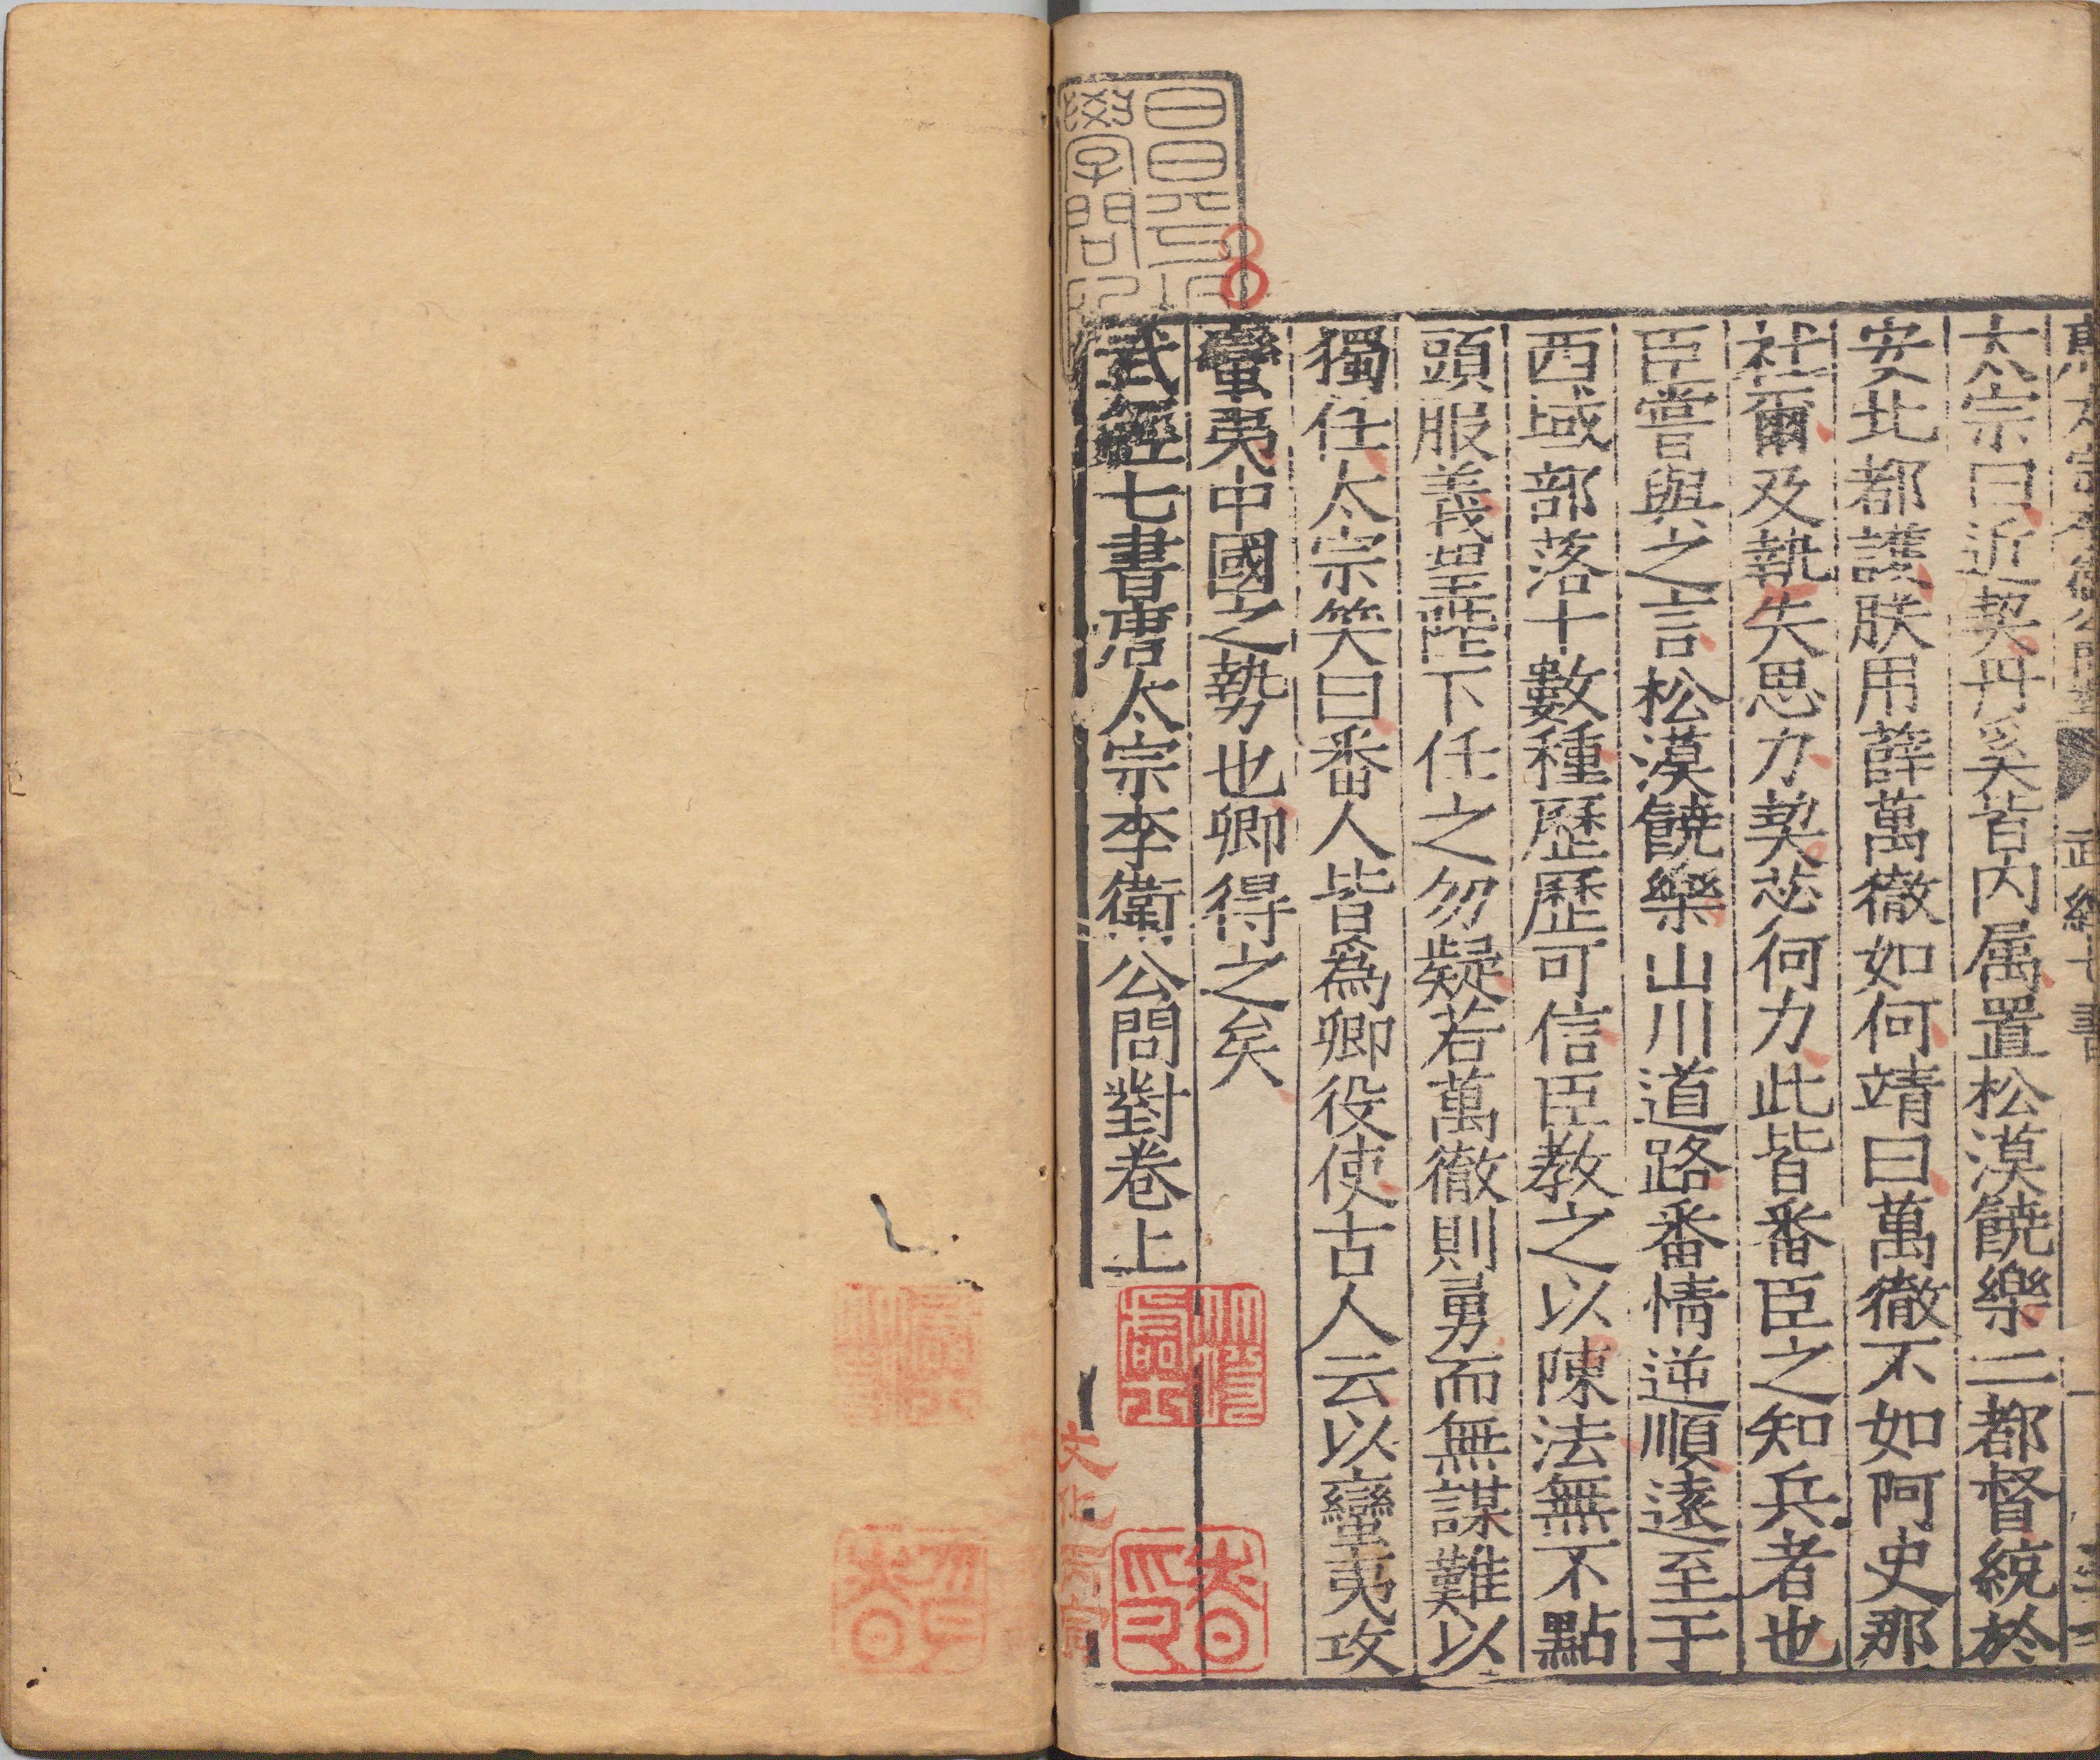 太宗曰近契丹奚皆内属置松漠饒樂二都督統於
安北都護朕用薛萬徹如何靖曰萬徹不如阿史那
社爾及執失思力契苾何力此皆番臣之知兵者也
臣嘗與之言松漠饒樂山川道路番情逆順遠至于
西域部落十數種歷歷可信臣教之以陳法無不點
頭服義望陛下任之勿疑若萬徹則勇而無謀難以
獨任太宗笑曰番人皆爲卿役使古人云以蠻夷攻
蠻夷中國之勢也卿得之矣
武經七書唐太宗李衛公問對卷上